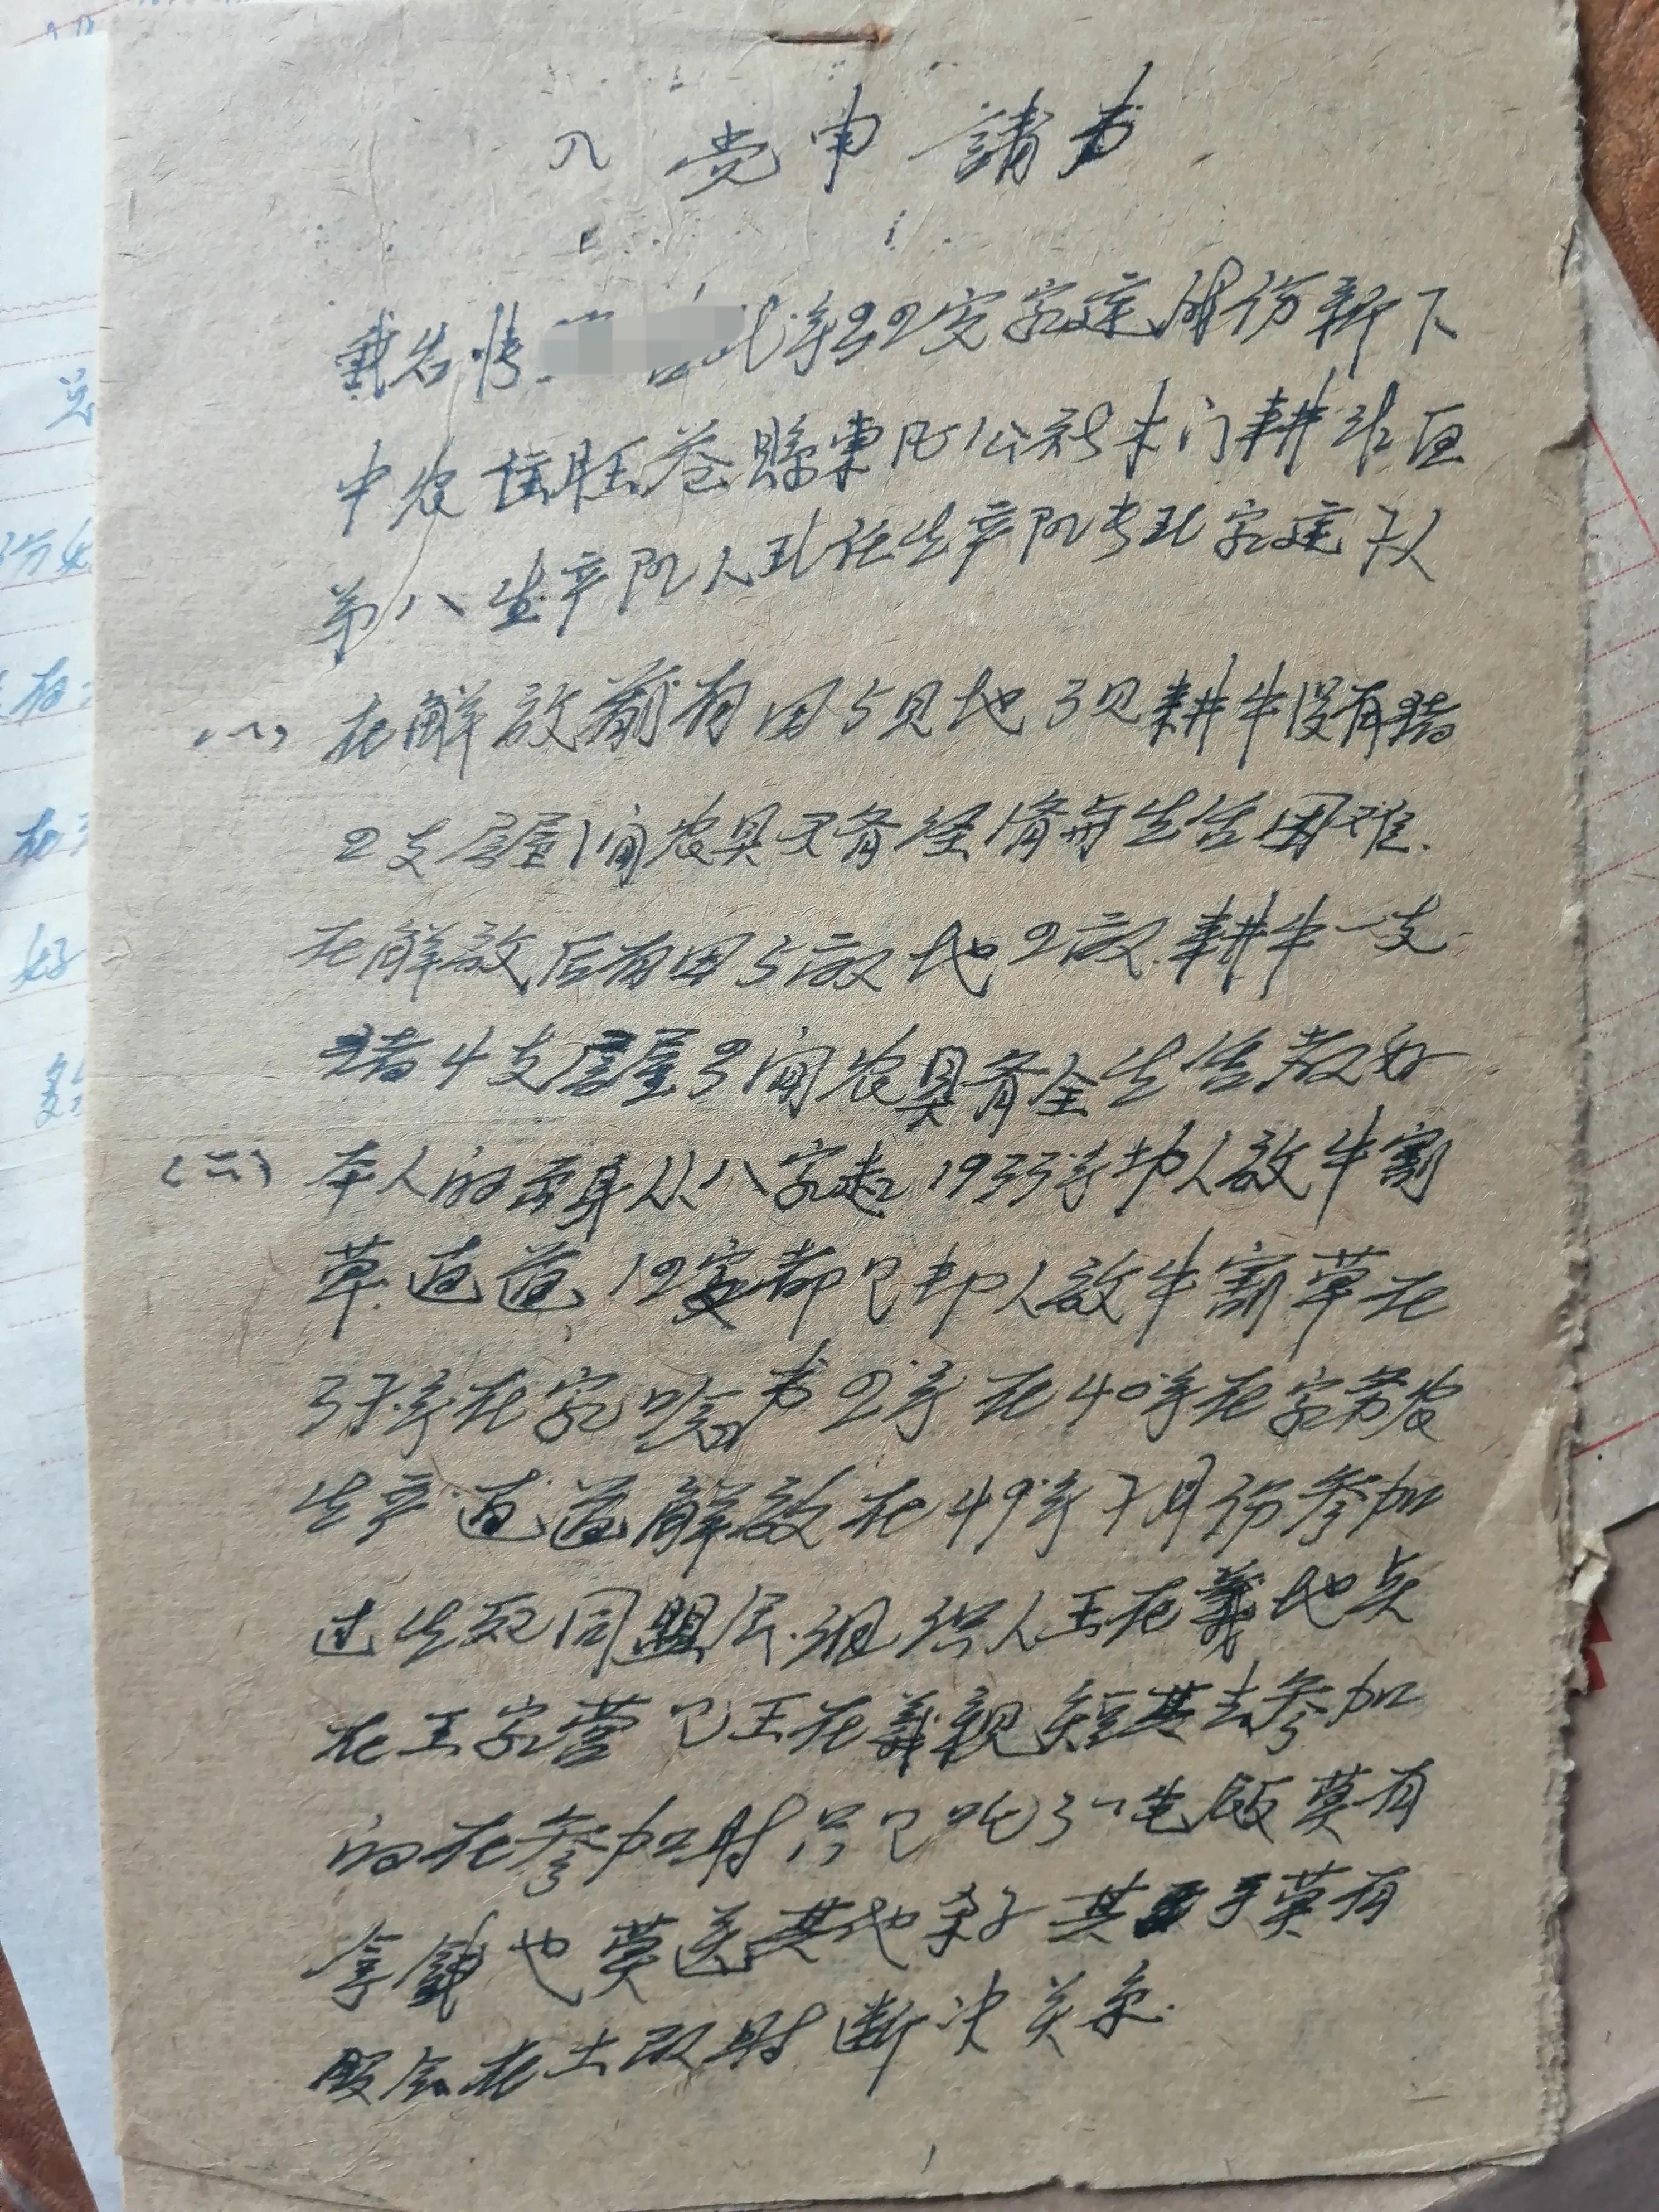 入党申請书
我名情 现年22岁家庭成份新下
中农住旺苍縣東凡公社木门耕作区
第八生产队人现任生产队长现家庭以
(一) 在解放前有田5贝地3贝耕牛没有猪
2支房屋1间农具不齐经济与生活困难.
在解放后有田5亩地2亩耕牛一支
猪4支房屋3间农具齐全生活教好
(二) 本人的出身从八字起1935年功人放牛割
草直道12岁都巳功人放牛割草在
37年在家唸书2年在40年在家劳农
生产直道解放在49年7月份参加
过生死同盟会.组织人王在義地点
在王家营巳王在義親短其去参加
的在参加时只巳吃了一屯饭莫有
拿錢也莫送其他条子其手莫有
服会在土改时断决关系.